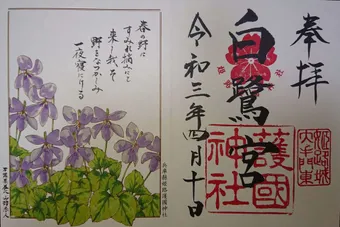 奉拝
白鷺宮
護國
神社
姫路城
大手門東
令和三年四月十日
春の野に
すみれ摘みにと
来し我そ
野をなつかしみ
一夜寝にける
兵庫縣姫路護國神社